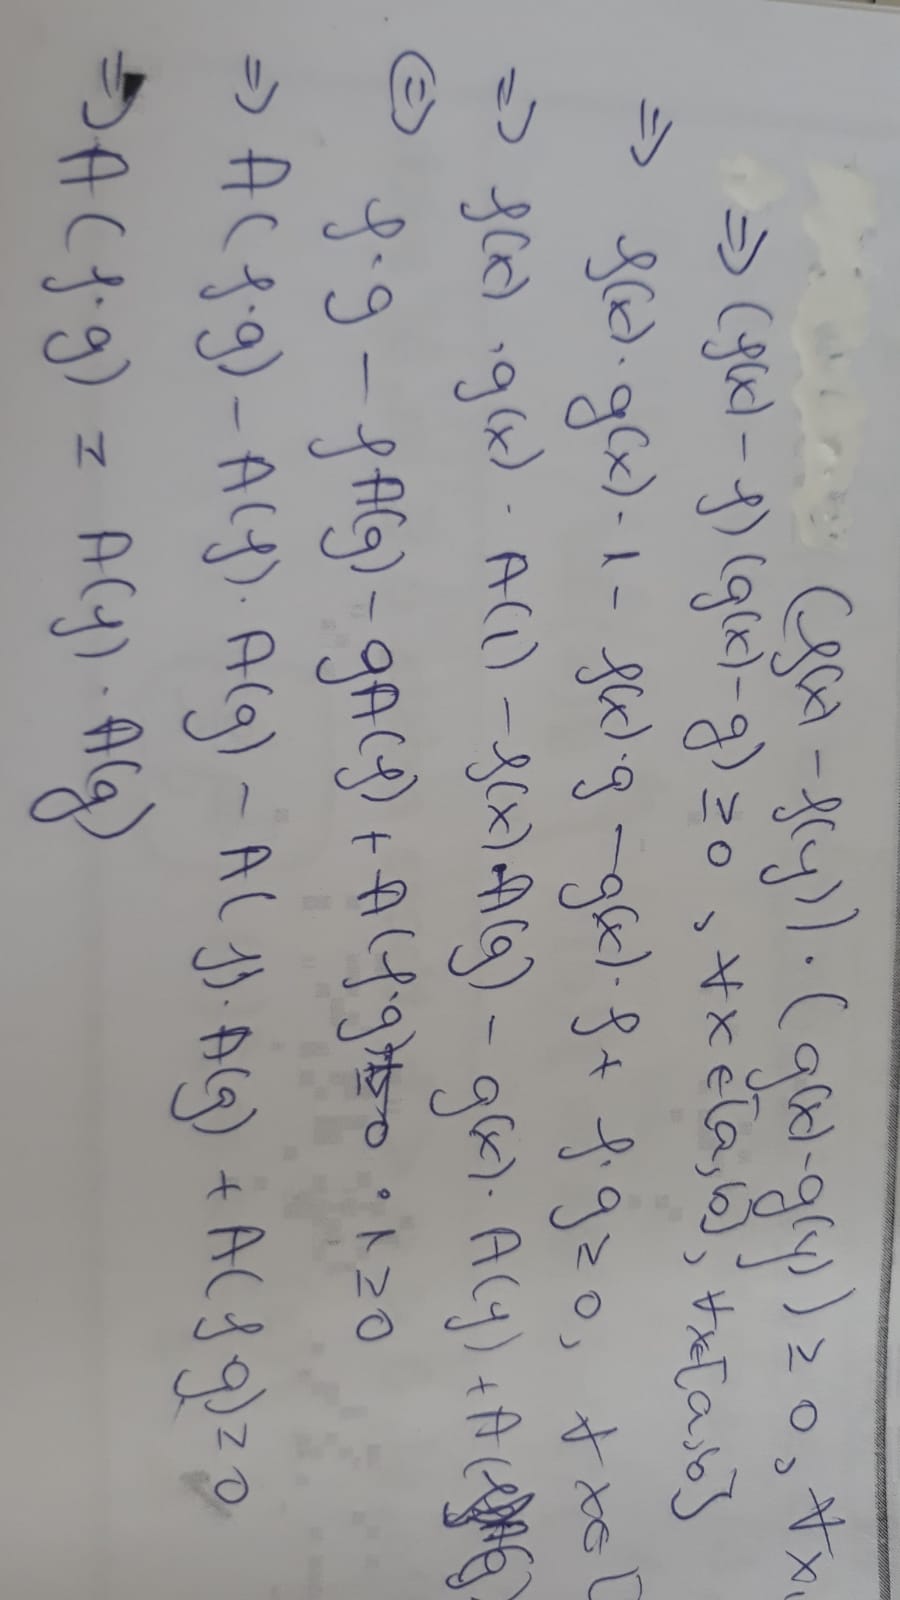 (f(x) - f(y)) · (g(x) - g(y)) ≥ 0, ∀x,
⇒ (f(x) - f) (g(x) - g) ≥ 0, ∀x∈[a,b], ∀x∈[a,b]
⇒ f(x) · g(x) · 1 - f(x) · g - g(x) · f + f · g ≥ 0, ∀x∈[
⇒ f(x) · g(x) · A(1) - f(x) · A(g) - g(x) · A(f) + A(
⇔ f · g - f A(g) - g A(f) + A(f·g) · 1 ≥ 0
⇒ A(f·g) - A(f) · A(g) - A(f) · A(g) + A(f g) ≥ 0
⇒ A(f·g) ≥ A(f) · A(g)